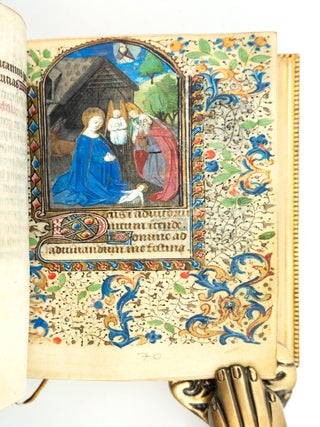 Deus i adiutoriu
meum itende
Domine ad
adiuuandum me festina
70